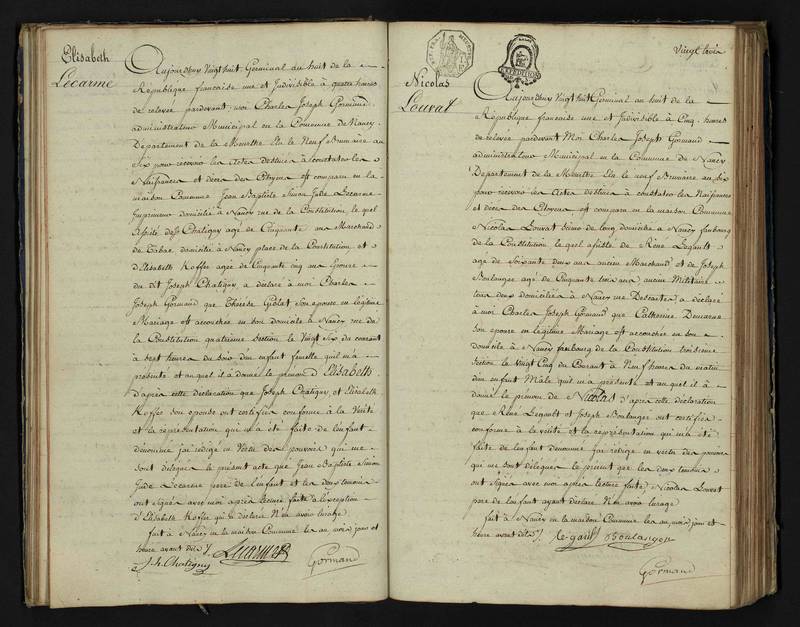 Elisabeth
Lecarme
Aujourdhuy Vingt huit Germinal an huit de la
République francaise une et Indivisible à quatre heures
de relevée pardevant moi Charles Joseph Gormand
administrateur Municipal en la Commune de Nancy
Departement de la Meurthe Elu le Neuf Brumaire an
Six pour recevoir les Actes destinés à constater les
Naissances et décès des Citoyens est comparu en la
maison Commune Jean Baptiste Simon Jude Lecarme
Imprimeur domicilié à Nancy rue de la Constitution, le quel
Assisté de Joseph Chatigny agé de Cinquante ans Marchand
de Tabac domicilié à Nancy place de la Constitution et
d'Elisabeth Koffer agée de Cinquante cinq ans Epouse
du dit Joseph Chatigny a déclaré à moi Charles
Joseph Gormand que Thérèse Giolat Son epouse en légitime
Mariage est accouchée en son domicile à Nancy rue de
la Constitution quatrieme Section le Vingt Six du courant
à Sept heures du Soir d'un enfant femelle quil m'a
présenté et auquel il a donné le prénom d'Elisabeth
d'après cette declaration que Joseph Chatigny et Elisabeth
Koffer son epouse ont certifiée conforme à la Vérité
et la représentation qui m'a été faite de l'enfant
denommé jai redigé en Vertu des pouvoirs qui me
Sont délégués le présent acte que Jean Baptiste Simon
Jude Lecarme pere de l'enfant et les deux temoins
ont Signés avec moi après lecture faite à l'exception
d'Elisabeth Koffer qui a déclaré N'en avoir l'usage
fait à Nancy en la maison Commune les an mois jour et
heure avant dits
Lecarme
J. h. Chatigny
Gormand
Vingt trois
Nicolas
Louvat
Aujourdhuy Vingt huit Germinal an huit de la
République francaise une et Indivisible à Cinq heures
de relevée pardevant Moi Charles Joseph Gormand
administrateur Municipal en la Commune de Nancy
Departement de la Meurthe Elu le neuf Brumaire an Six
pour recevoir les Actes destinés à constater les Naissances
et décès des Citoyens est comparu en la maison Commune
Nicolas Louvat domicilié à Nancy faubourg
de la Constitution le quel assisté de René Legault
agé de Soixante deux ans ancien Marchand et de Joseph
Boulanger agé de Cinquante trois ans ancien Militaire
tous deux domiciliés à Nancy rue Descartes a déclaré
à moi Charles Joseph Gormand que Catherine Demarne
Son epouse en légitime Mariage est accouchée en son
domicile à Nancy faubourg de la Constitution troisieme
Section le Vingt Cinq du Courant à Neuf heures du matin
d'un enfant Mâle quil m'a présenté et auquel il a
donné le prénom de Nicolas d'après cette déclaration
que René Legault et Joseph Boulanger ont certifiée
conforme à la vérité et la représentation qui m'a été
faite de l'enfant denommé jai redigé en vertu des pouvoirs
qui me sont délégués le présent que les deux temoins
ont Signés avec moi après lecture faite Nicolas Louvat
pere de l'enfant ayant déclaré N'en avoir l'usage
fait à Nancy en la maison Commune les an mois jour et
heure avant dits
le gault
Boulanger
Gormand